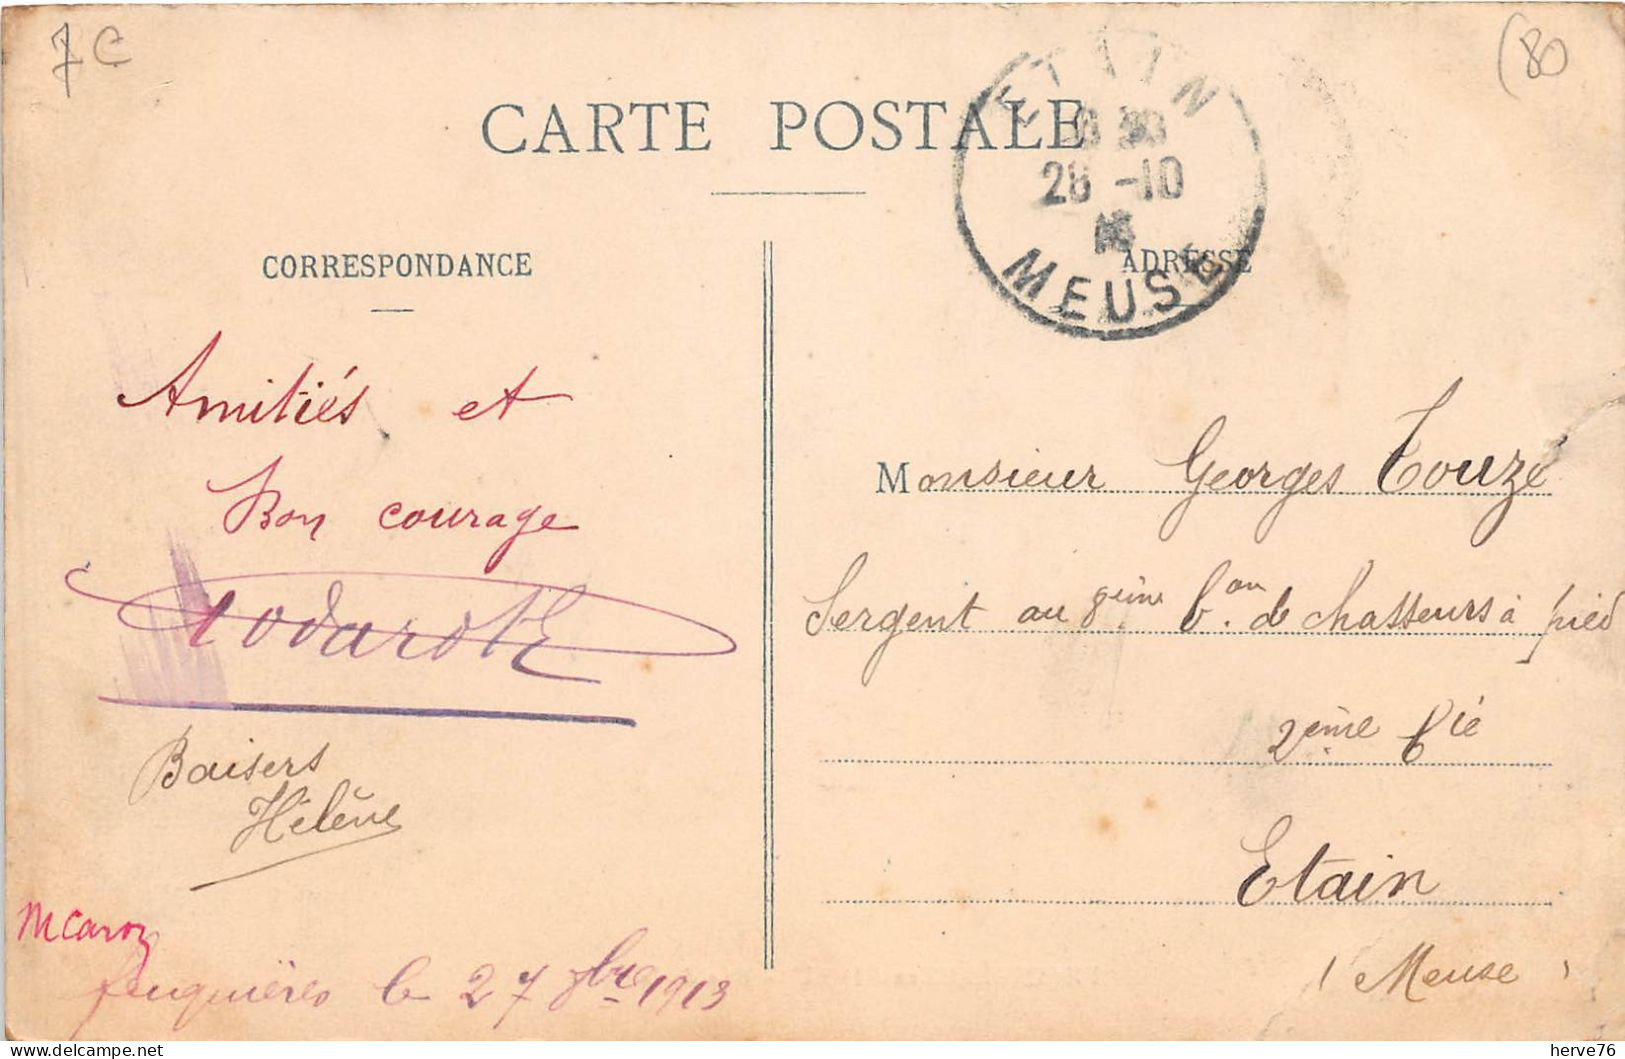 7C
(80
CARTE POSTALE
ETAIN
28 -10
MEUSE
CORRESPONDANCE
ADRESSE
Amitiés et
Bon courage
Baisers
Hélène
M Caroz
feuquières le 27 8bre 1913
Monsieur Georges Touzé
Sergent au 8ème b.on de chasseurs à pied
2ème Cie
Etain
(Meuse)
herve76